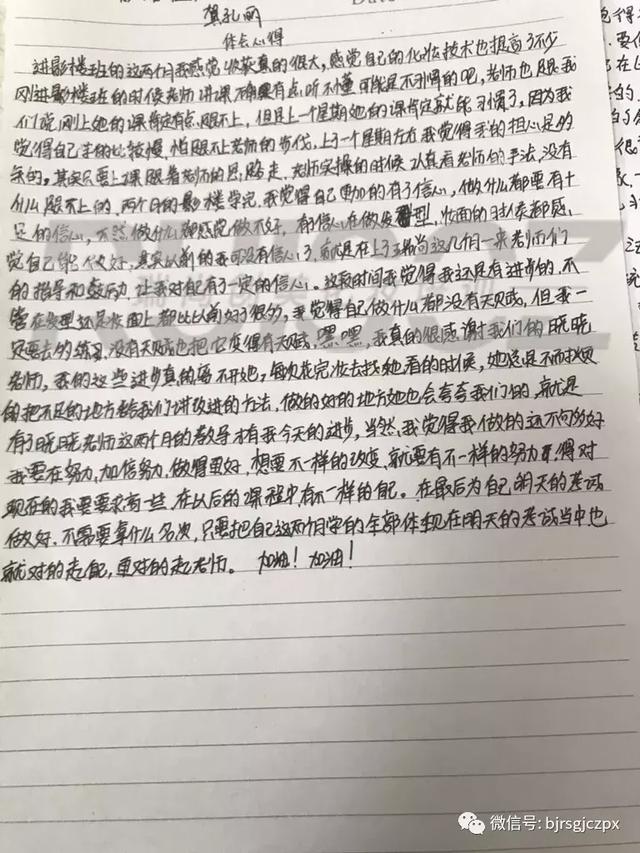 Date
龚孔丽
体会心得
进影楼班的这两个月我感觉收获真的很大,感觉自己的化妆技术也提高了不少
刚进影楼班的时候老师讲课不有点听不懂可能是不习惯的吧,老师也跟我
们说,刚上她的课肯定有点跟不上,但是上一个星期她的课肯定就能习惯了,因为我
觉得自己手的比较慢,怕跟不上老师的步伐,上了一个星期左右我觉得我的担心是多
余的。其实只要上课跟着老师的思路走,老师实操的时候认真看老师的手法,没有
什么跟不上的,两个月的影楼学完,我觉得自己更加的有了信心,做什么都要有十
足的信心,不然做什么都感觉做不好,有信心在做发型,妆面的时候都感
觉自己能做好,其实以前的我可没有信心了,就是在上了瑞尚这几个月来老师们
的指导和鼓励,让我对自有了一定的信心。这段时间我觉得我还是有进步的,不
管在发型还是妆面上都比以前好了很多,我觉得自己做什么都没有天赋,但我一
定要去多练习,没有天赋也把它变得有天赋,嘿嘿,我真的很感谢我们的晓晓
老师,我的这些进步真的离不开她,每次化完妆去找她看的时候,她总是不厌其烦
的把不足的地方给我们讲改进的方法,做的好的地方她也会夸夸我们的,就是
有了晓晓老师这两个月的教导才有我今天的进步,当然,我觉得我做的还不够多好
我要在努力,加倍努力,做得更好,想要不一样的改变,就要有不一样的努力,得对
现在的我要要求高一些,在以后的课程中有不一样的自己。在最后为自己明天的考试
做好,不需要拿什么名次,只要把自己这两个月学的全部体现在明天的考试当中也
就对的起自己,更对的起老师。 加油!加油!
微信号: bjrsgjczpx